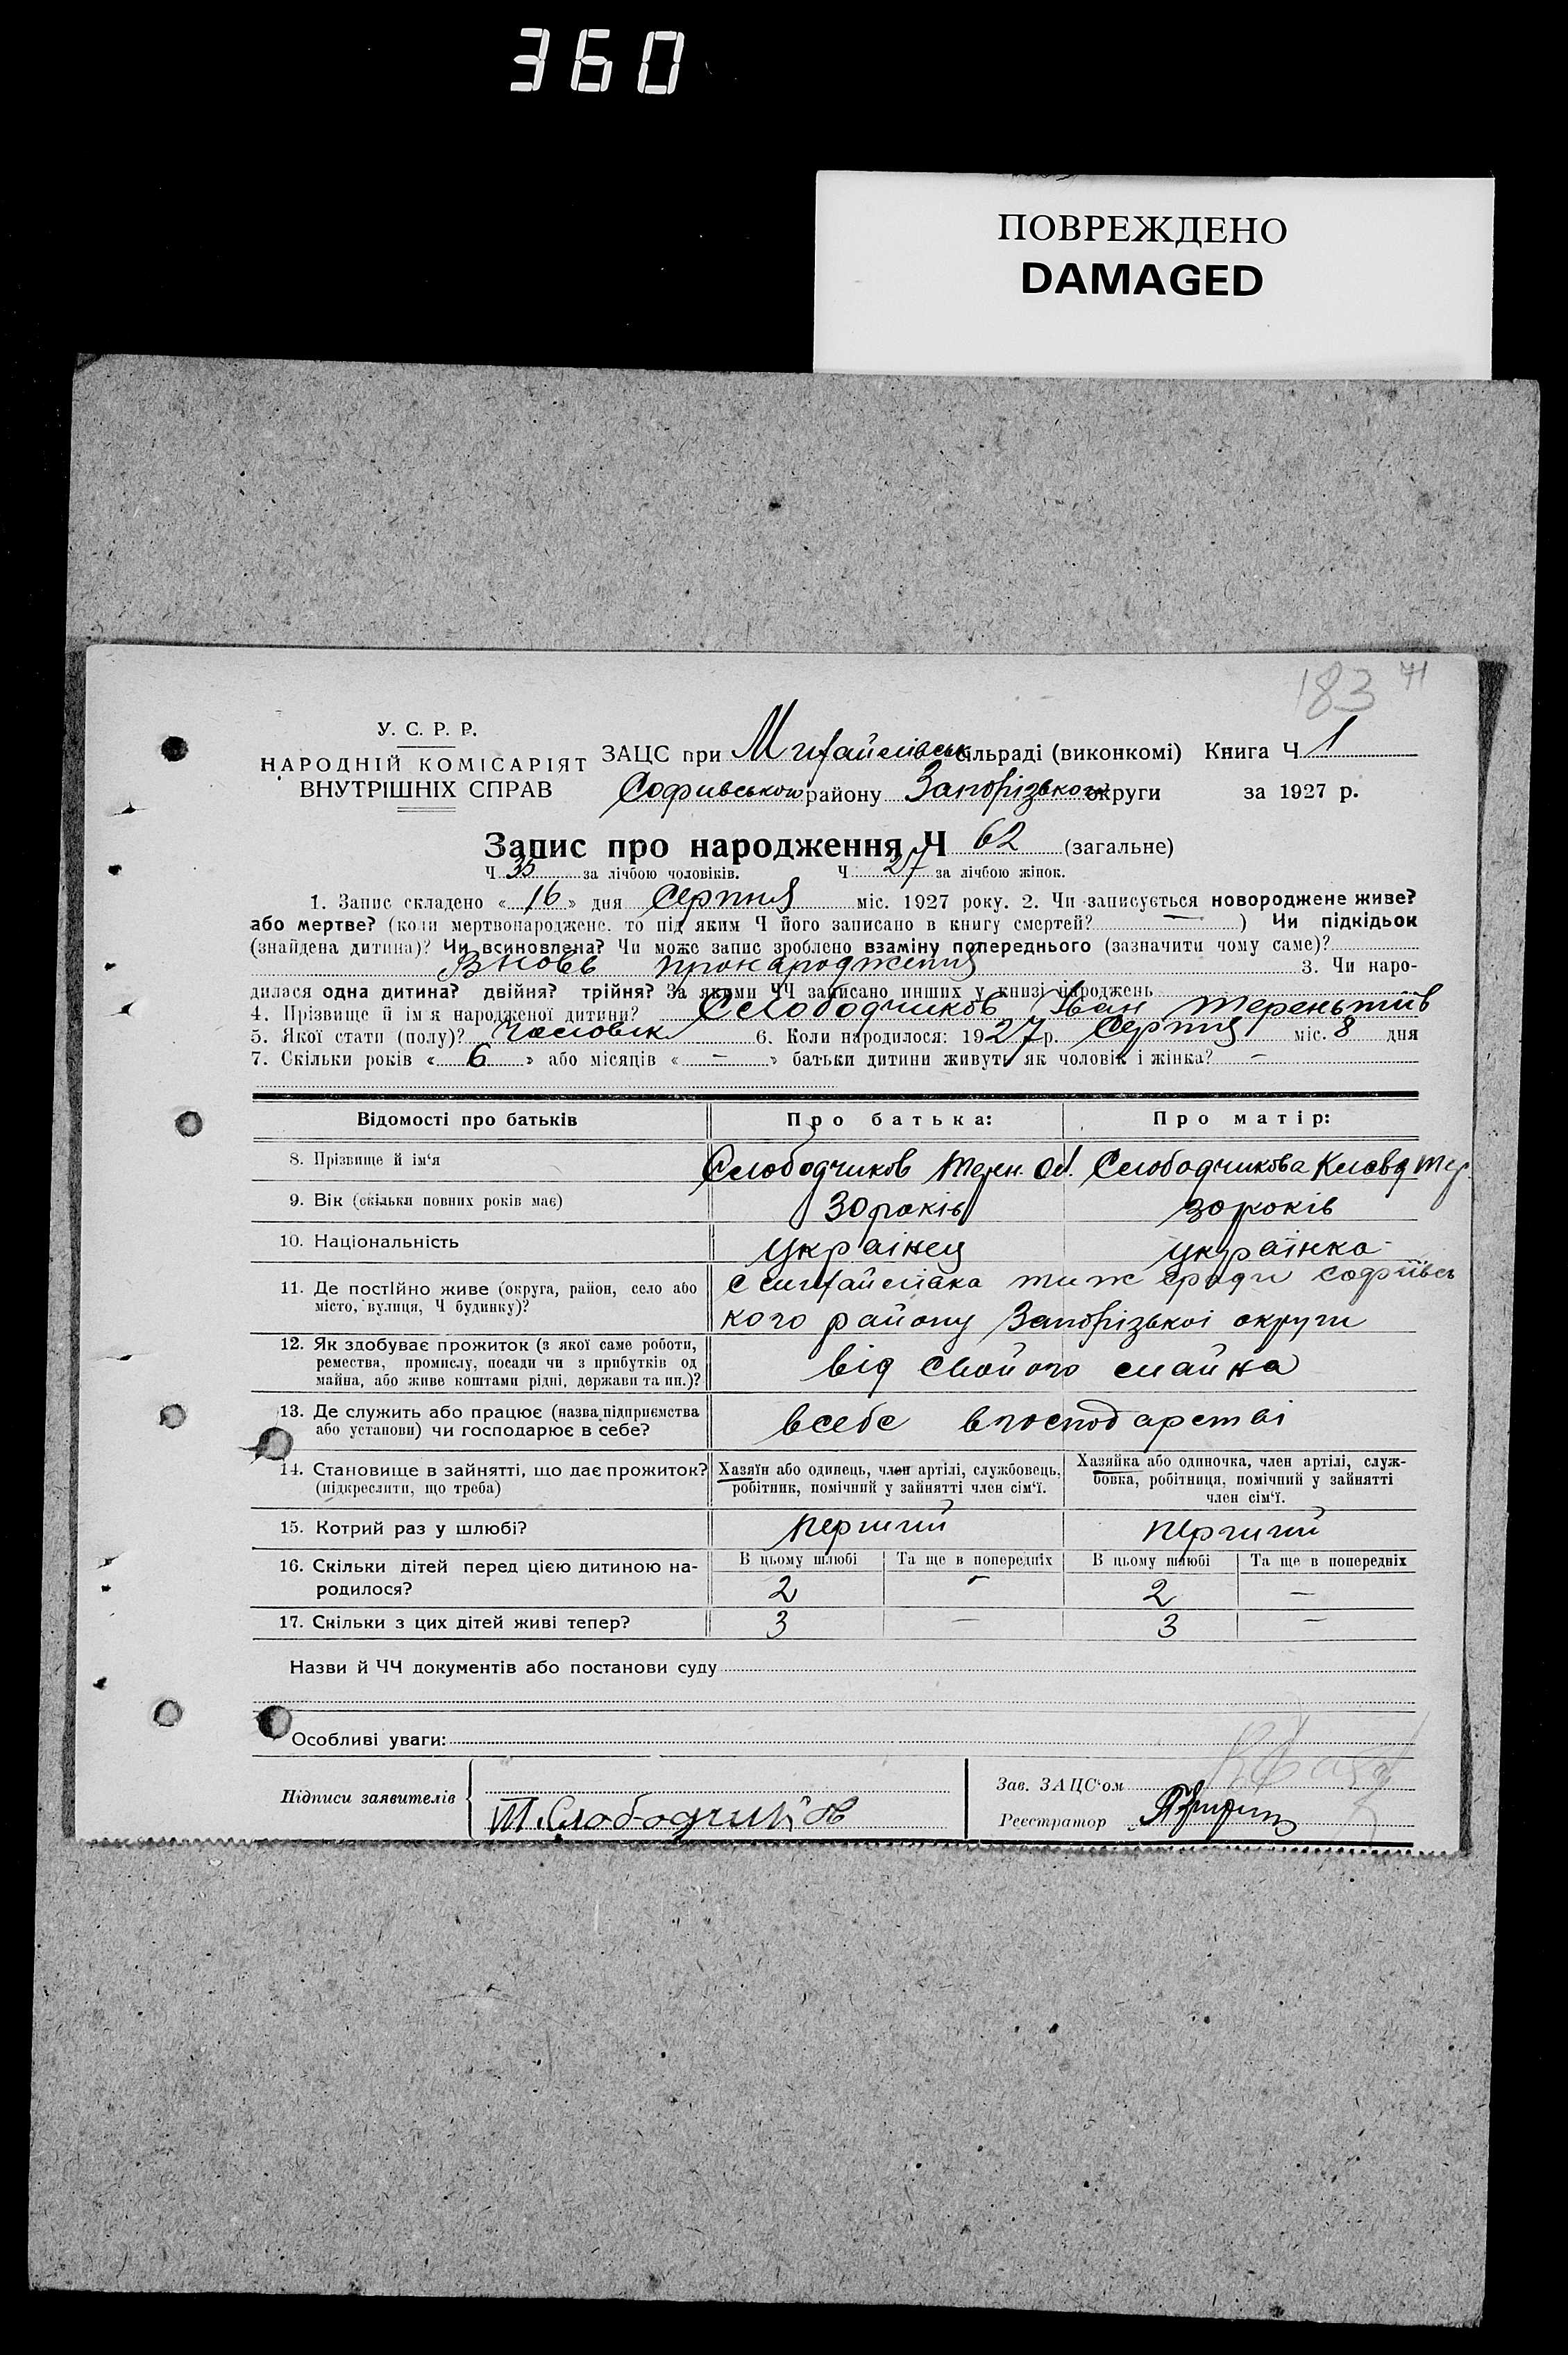 360
ПОВРЕЖДЕНО
DAMAGED
183 71
У. С. Р. Р.
НАРОДНІЙ КОМІСАРІЯТ
ВНУТРІШНІХ СПРАВ
ЗАЦС при Михайлівськ сільраді (виконкомі) Книга Ч 1
Софивського району Запорізького округи за 1927 р.
Запис про народження Ч 62 (загальне)
Ч 35 за лічбою чоловіків. Ч 27 за лічбою жінок.
1. Запис складено « 16 » дня Серпня міс. 1927 року. 2. Чи записується новороджене живе?
або мертве? (коли мертвонароджене, то під яким Ч його записано в книгу смертей? — ) Чи підкідьок
(знайдена дитина)? Чи всиновлена? Чи може запис зроблено взаміну попереднього (зазначити чому саме)?
Вновь пронародження 3. Чи наро-
дилася одна дитина? двійня? трійня? За якими ЧЧ записано инших у книзі народжень
4. Прізвище й ім'я народженої дитини? Слободчиков Іван Тереньтіїв
5. Якої стати (полу)? Чоловік 6. Коли народилося: 1927 р. Серпня міс. 8 дня
7. Скільки років « 6 » або місяців « — » батьки дитини живуть як чоловік і жінка? —
Відомості про батьків Про батька: Про матір:
8. Прізвище й ім'я Слободчиков Терен. Слободчикова
9. Вік (скільки повних років має) 30 років 30 років
10. Національність Українец українка
11. Де постійно живе (округа, район, село або
місто, вулиця, Ч будинку)?
софіївсь
кого району Запорізькоі округи
12. Як здобуває прожиток (з якої саме роботи,
ремества, промислу, посади чи з прибутків од
майна, або живе коштами рідні, держави та ин.)?
від свойого майна
13. Де служить або працює (назва підприємства
або установи) чи господарює в себе?
всебе вгосподарстві
14. Становище в зайнятті, що дає прожиток?
(підкреслити, що треба)
Хазяїн або одинець, член артілі, службовець,
робітник, помічний у зайнятті член сім'ї.
Хазяйка або одиночка, член артілі, служ-
бовка, робітниця, помічний у зайнятті
член сім'ї.
15. Котрий раз у шлюбі? первий первий
16. Скільки дітей перед цією дитиною на-
родилося?
В цьому шлюбі Та ще в попередніх В цьому шлюбі Та ще в попередніх
2 — 2 —
17. Скільки з цих дітей живі тепер? 3 — 3 —
Назви й ЧЧ документів або постанови суду
Особливі уваги:
Підписи заявителів Т. Слободчиков
Зав. ЗАЦС'ом
Реєстратор